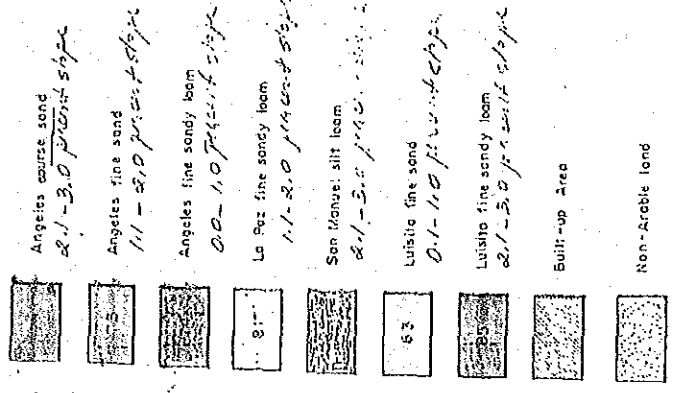 Angeles course sand
2.1 - 3.0 percent slope
Angeles fine sand
1.1 - 2.0 percent slope
Angeles fine sandy loam
0.0 - 1.0 percent slope
La Paz fine sandy loam
1.1 - 2.0 percent slope
San Manuel silt loam
2.1 - 3.0
Luisita fine sand
0.1 - 1.0 percent slope
63
Luisita fine sandy loam
2.1 - 3.0 percent slope
85
Built-up Area
Non-Arable land